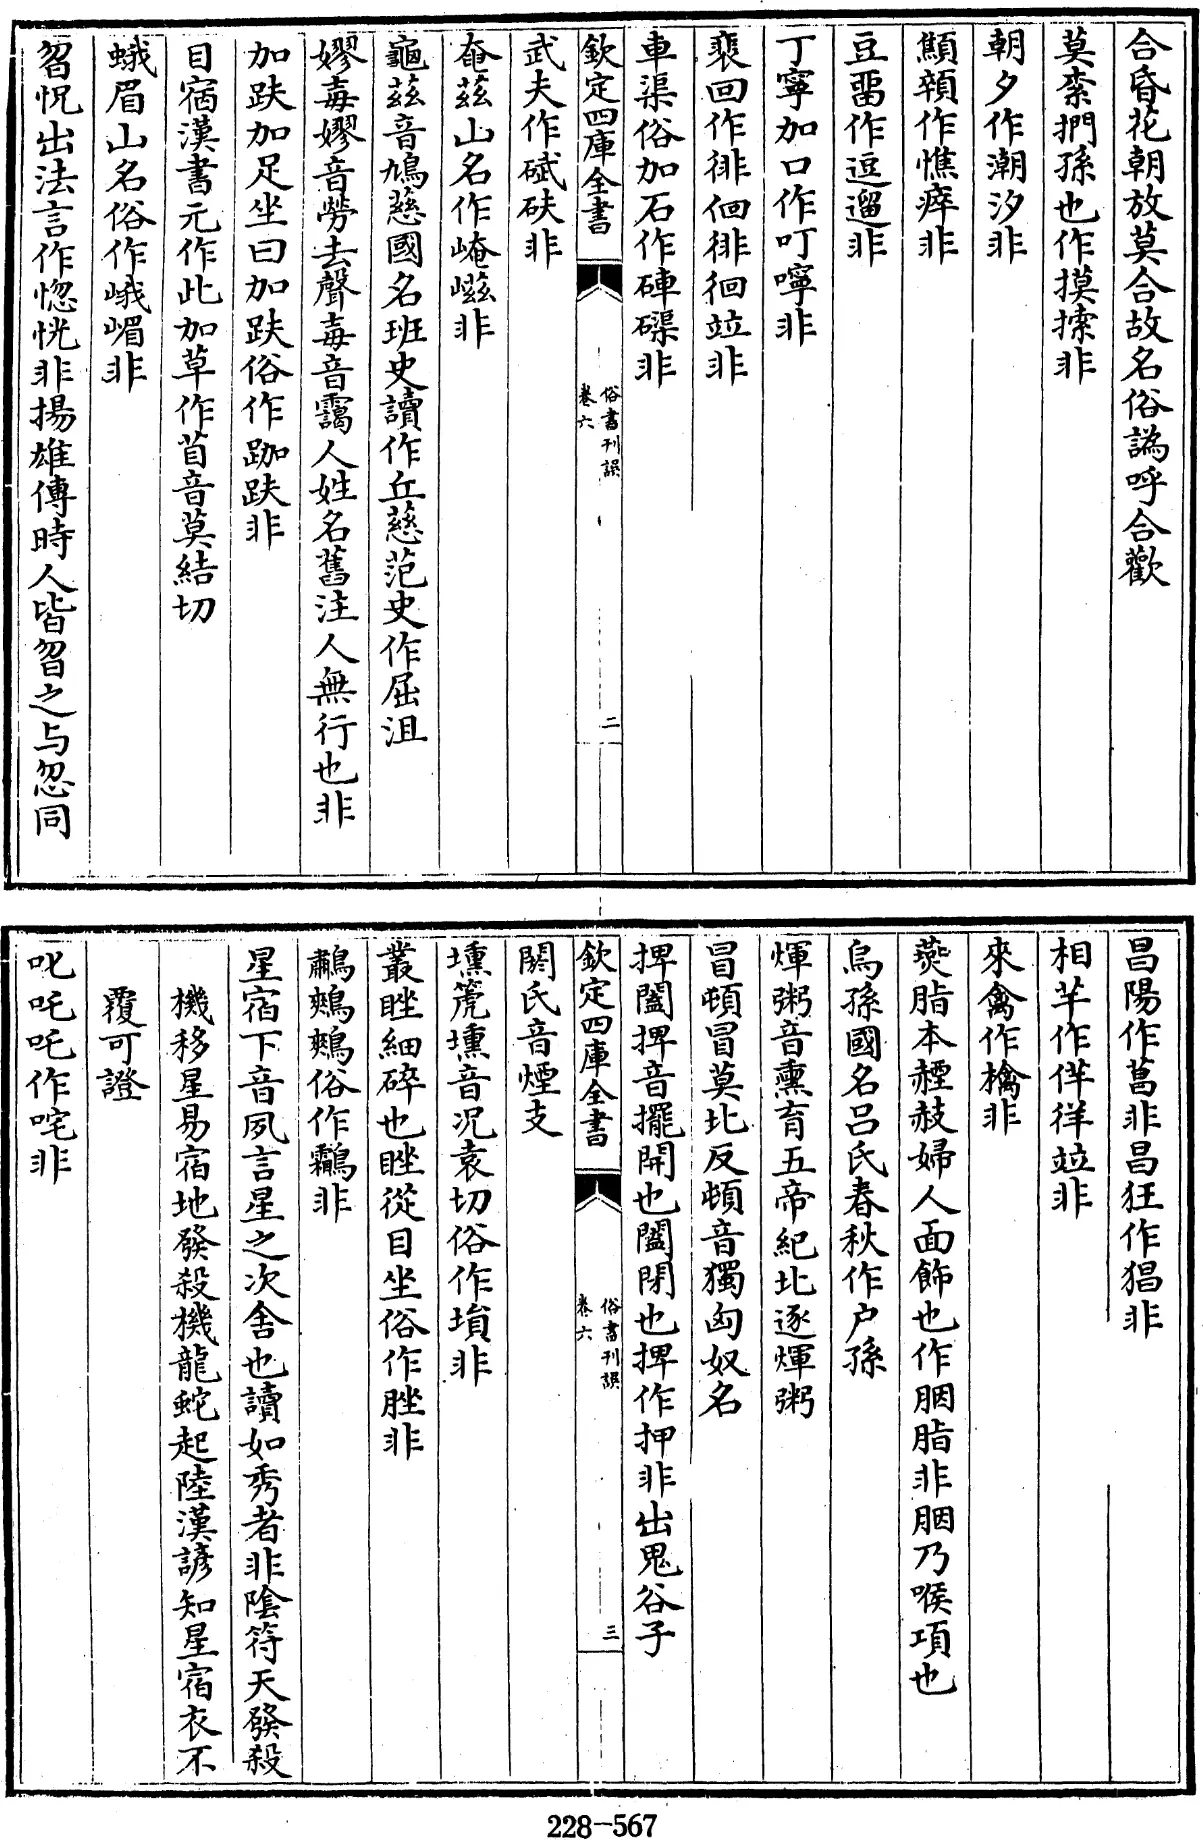 合昏花朝放莫合故名俗譌呼合歡
莫㮦捫孫也作摸㩢非
朝夕作潮汐非
顦顇作憔瘁非
豆畱作逗遛非
丁寧加口作叮嚀非
裵回作徘佪徘徊竝非
車渠俗加石作硨磲非
欽定四庫全書
俗書刊誤
卷六
二
武夫作碔砆非
奄兹山名作崦嵫非
龜兹音鳩慈國名班史讀作丘慈范史作屈沮
嫪毐嫪音勞去聲毐音靄人姓名舊注人無行也非
加趺加足坐曰加趺俗作跏趺非
目宿漢書元作此加草作苜音莫結切
蛾眉山名俗作峨嵋非
曶怳出法言作惚恍非揚雄傳時人皆曶之与忽同
昌陽作菖非昌狂作猖非
相羊作佯徉竝非
來禽作檎非
燕脂本䞓䞚婦人面飾也作胭脂非胭乃喉項也
烏孫國名呂氏春秋作户孫
煇粥音熏育五帝紀北逐煇粥
冒頓冒莫北反頓音獨匈奴名
捭闔捭音擺開也闔閉也捭作押非出鬼谷子
欽定四庫全書
俗書刊誤
卷六
三
閼氏音煙支
壎篪壎音况袁切俗作塤非
叢脞細碎也脞從目坐俗作脞非
鷫鷞鷞俗作鸘非
星宿下音夙言星之次舍也讀如秀者非陰符天發殺
機移星易宿地發殺機龍蛇起陸漢諺知星宿衣不
覆可證
叱吒吒作咤非
228-567